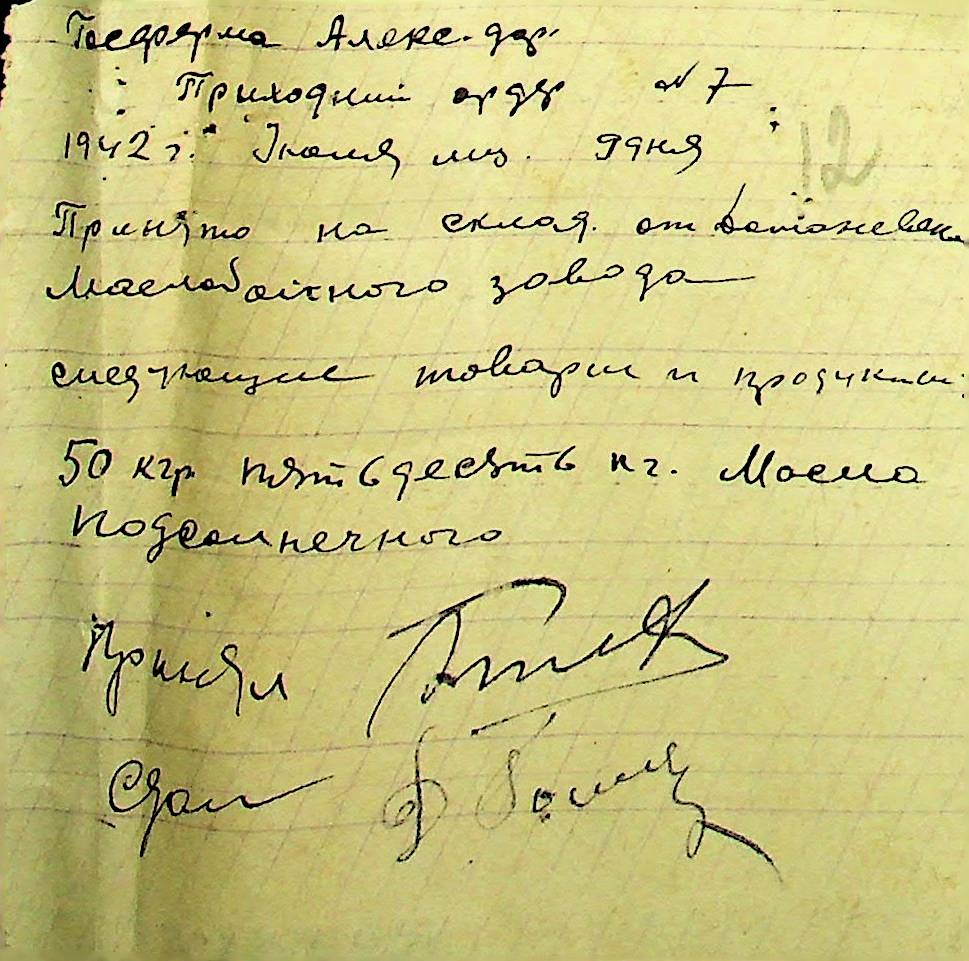 Госферма Алекс. дар.
Приходний ордер №7
12
1942 г. Июля мц. 9 дня
Принято на склад. от
Маслобойного завода
следующие товари и продукти:
50 кгр пятьдесять кг. Масла
Подсолнечного
Принял
Сдал